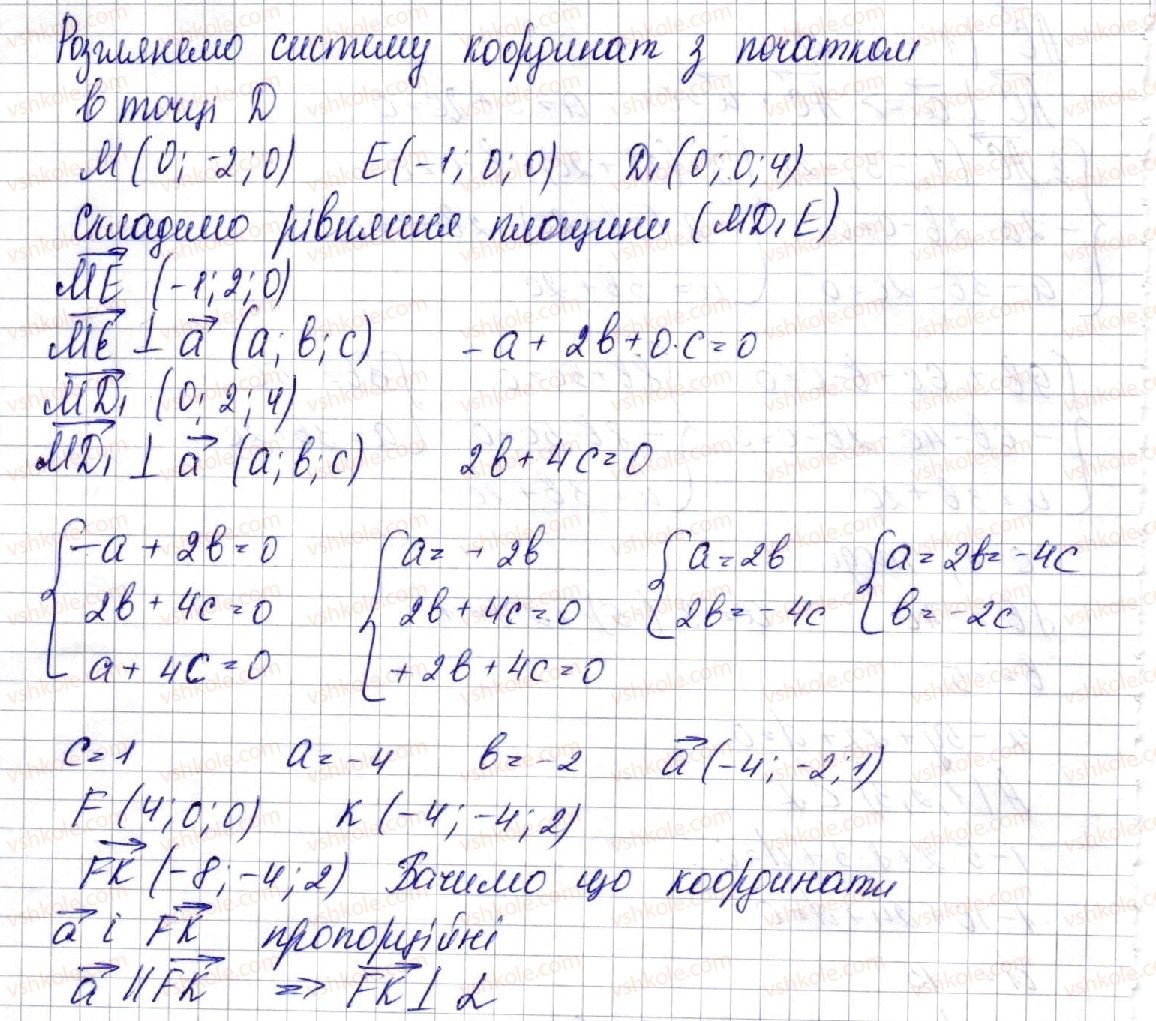 Розглянемо систему координат з початком
в точці D
M (0; -2; 0) E(-1; 0; 0) D₁ (0; 0; 4)
Складемо рівняння площини (MD₁E)
ME (-1; 2; 0)
ME ⊥ a (a; b; c) -a + 2b + 0·c = 0
MD₁ (0; 2; 4)
MD₁ ⊥ a (a; b; c) 2b + 4c = 0
{ -a + 2b = 0 { a = + 2b { a = 2b { a = 2b = -4c
2b + 4c = 0 2b + 4c = 0 2b = -4c b = -2c
a + 4c = 0 + 2b + 4c = 0
c = 1 a = -4 b = -2 a (-4; -2; 1)
F (4; 0; 0) K (-4; -4; 2)
FK (-8; -4; 2) Бачимо що координати
a і FK пропорційні
a || FK => FK ⊥ α